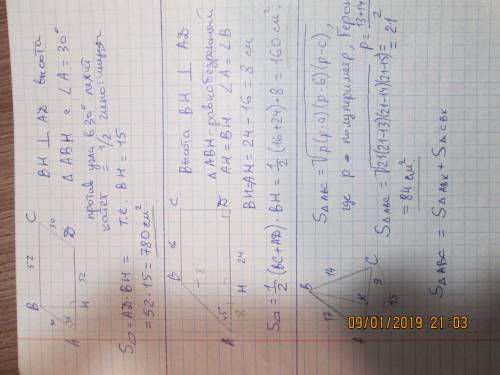 B 52 C
30
A H 52 D
30°
BH ⊥ AD высота
△ ABH с ∠A = 30°
против угла в 30° лежит
катет = 1/2 гипотенузы
т.е. BH = 15
S▱ = AD·BH =
= 52·15 = 780 см²
B 16 C
8
A 45° 8 H 24 D
Высота BH ⊥ AD
△ABH - равнобедренный
AH = BH ∠A = ∠B
BH = AH = 24 - 16 = 8 см
S = 1/2 (BC+AD)·BH = 1/2 (16+24)·8 = 160 см²
B 14 C
K 9
15
S△ABC = √p(p-a)(p-b)(p-c),
где p - полупериметр, Герон
p = 13+14
2
= 21
S△ABC = √21(21-13)(21-14)(21-15) =
= 84 см²
S△ABC = S△ABK + S△CBK
09/01/2019 21:03